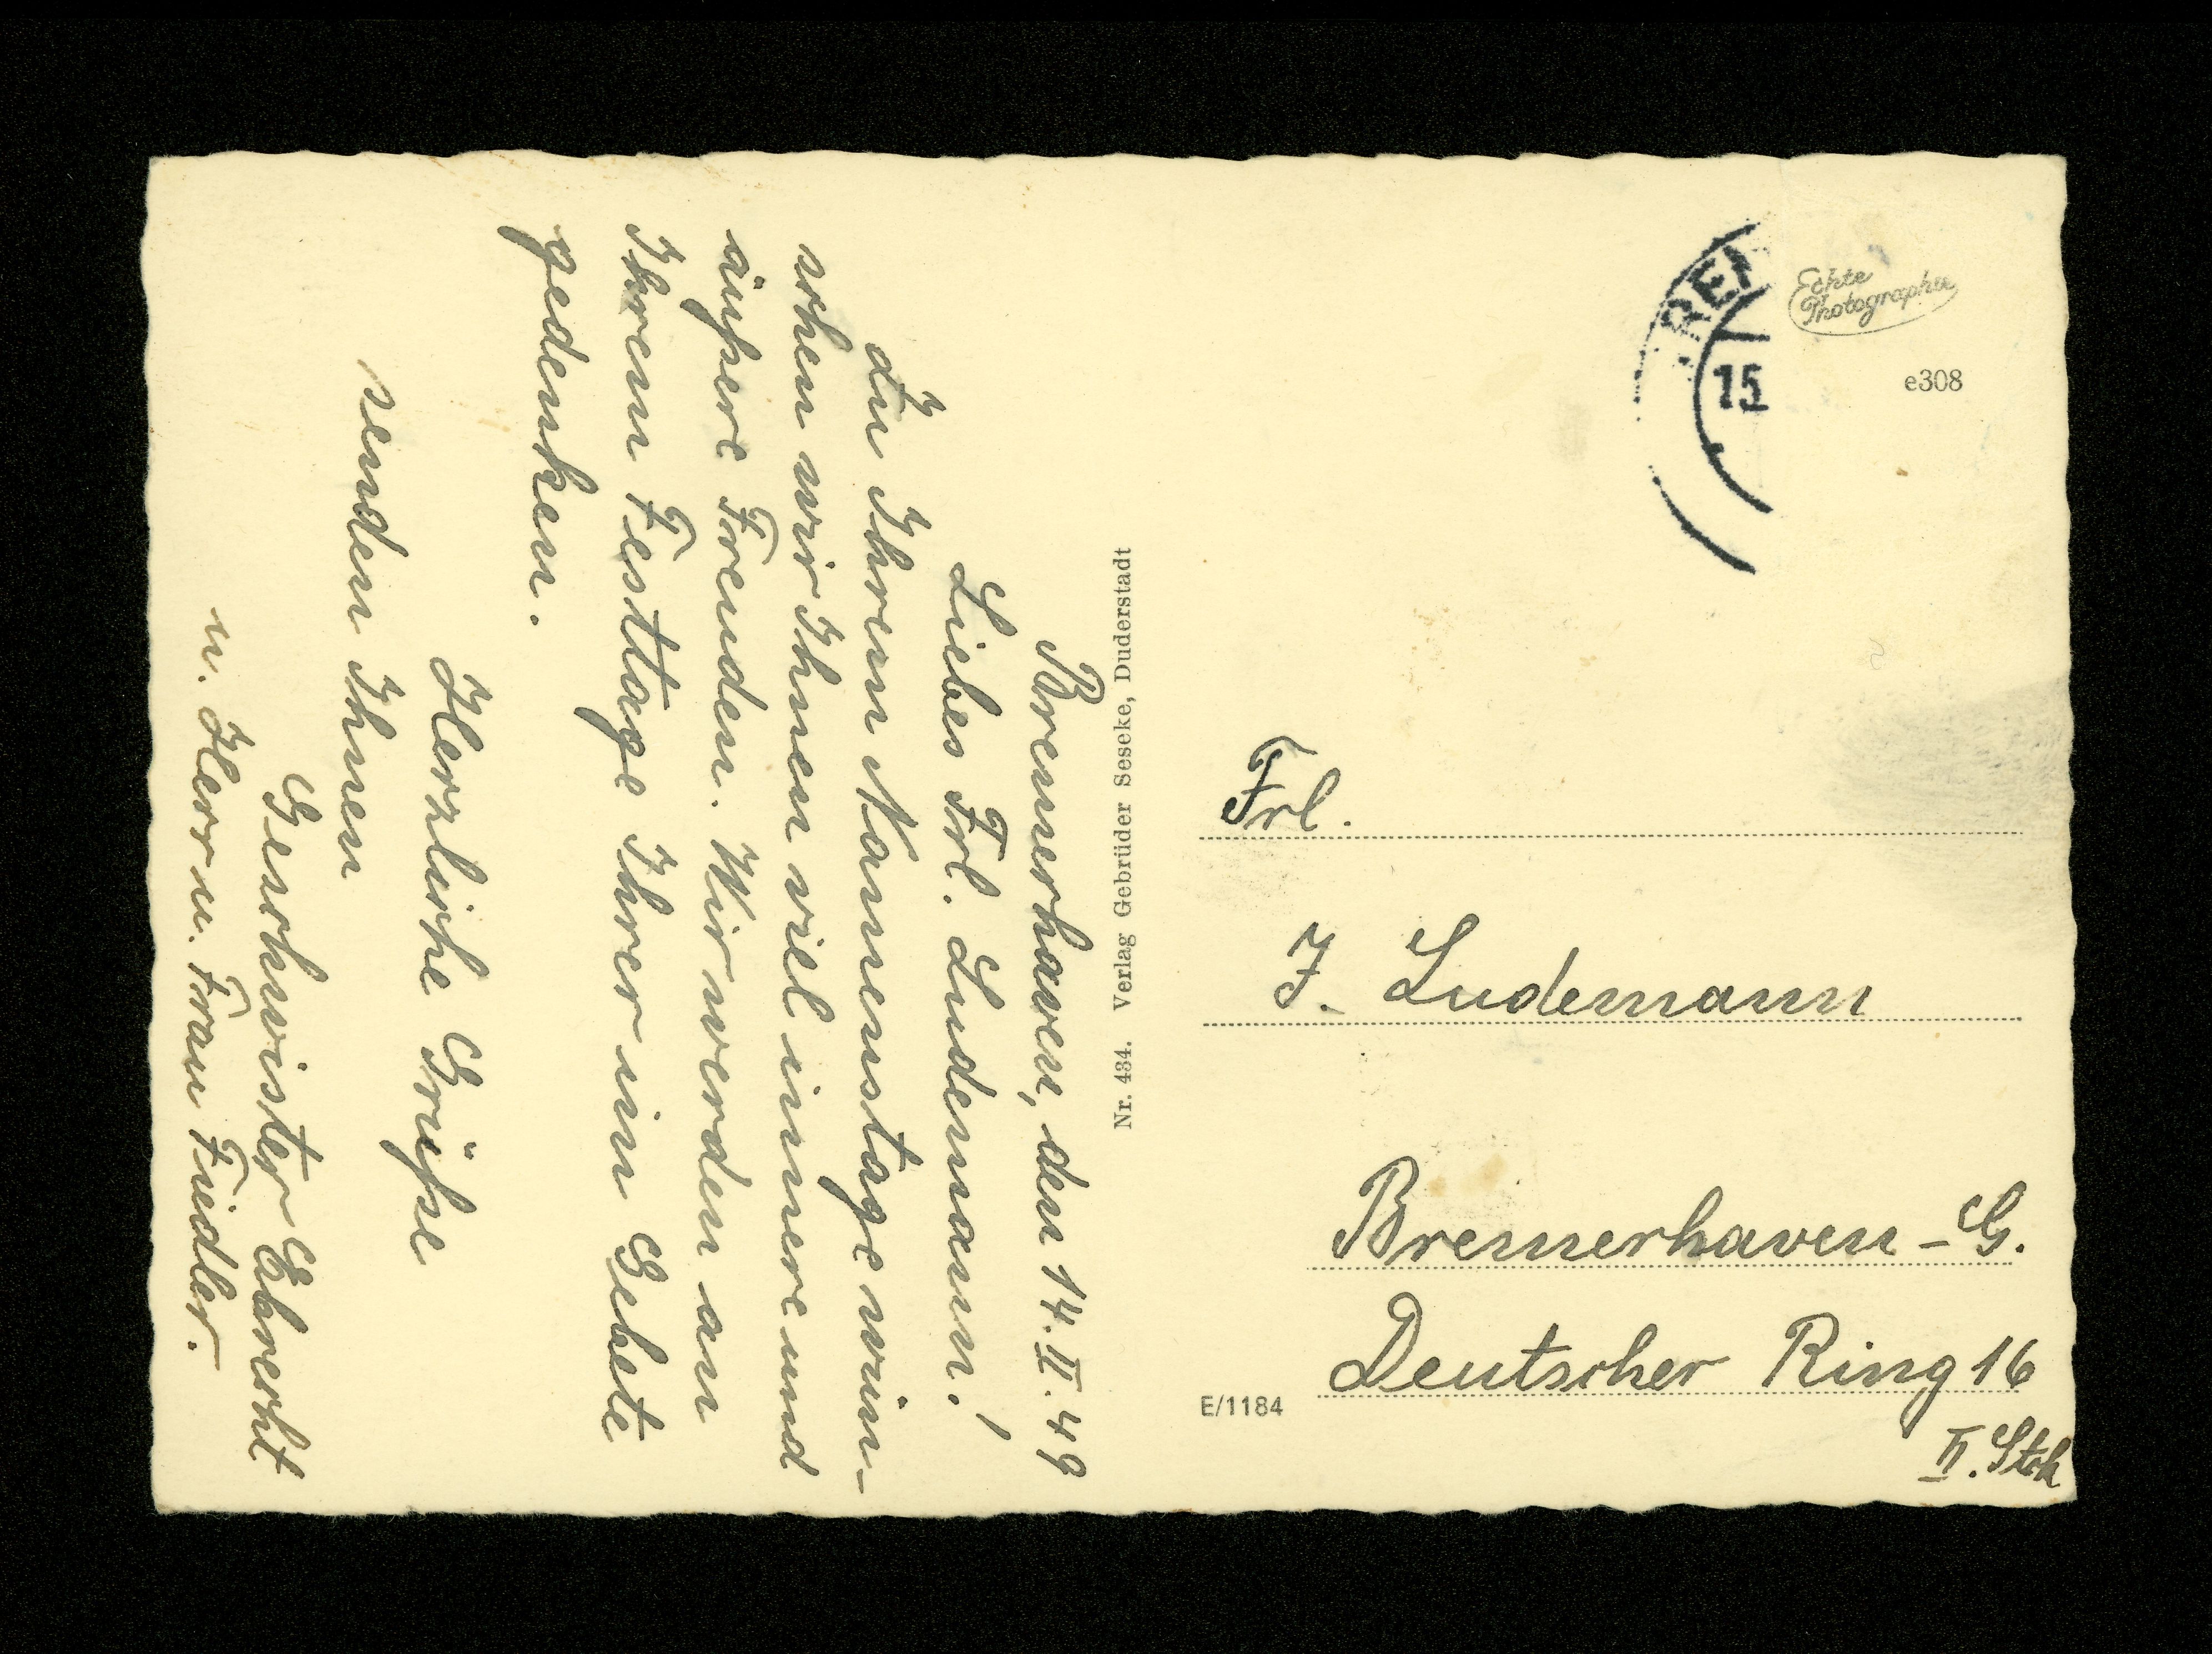 Bremerhaven, den 14. II. 49
Liebes Frl. Ludemann!
Zu Ihrem Namenstage wün-
schen wir Ihnen viel innere und
äußere Freuden. Wir werden an
Ihrem Festtage Ihrer im Gebete
gedenken.
Herzliche Grüße
senden Ihnen
Geschwister Ebrecht
u. Herr u. Frau Fiedler.
Nr. 434. Verlag Gebrüder Seseke, Duderstadt
REM
15
Echte
Photographie
e308
Frl.
J. Ludemann
Bremerhaven-G.
Deutscher Ring 16
II. Stck
E/1184